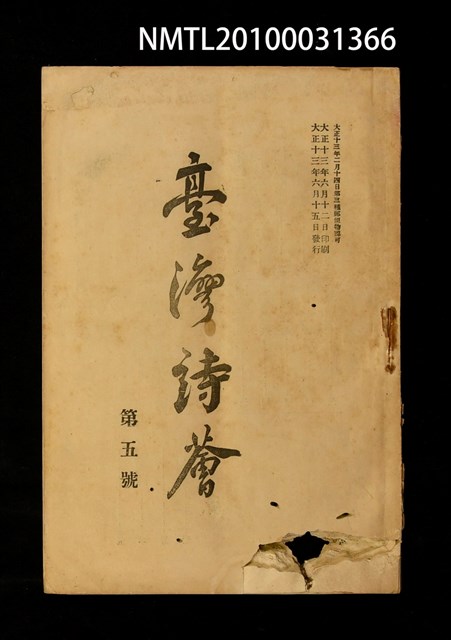 NMTL20100031366
大正十三年二月十四日第三種郵便物認可
大正十三年六月十二日印刷
大正十三年六月十五日發行
臺灣詩薈
第五號